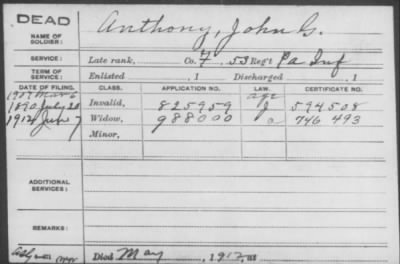 DEAD
NAME OF SOLDIER: Anthony, John G.
SERVICE: Late rank, Co. F, 53 Reg't Pa Inf
TERM OF SERVICE: Enlisted , 1 Discharged , 1
DATE OF FILING. CLASS. APPLICATION NO. LAW. CERTIFICATE NO.
1907 Mar 6 age
1890 July 28 Invalid, 825959 J 594508
1912 Jun 7 Widow, 988000 a 746 493
Minor,
ADDITIONAL SERVICES:
REMARKS:
Died May , 1912, at